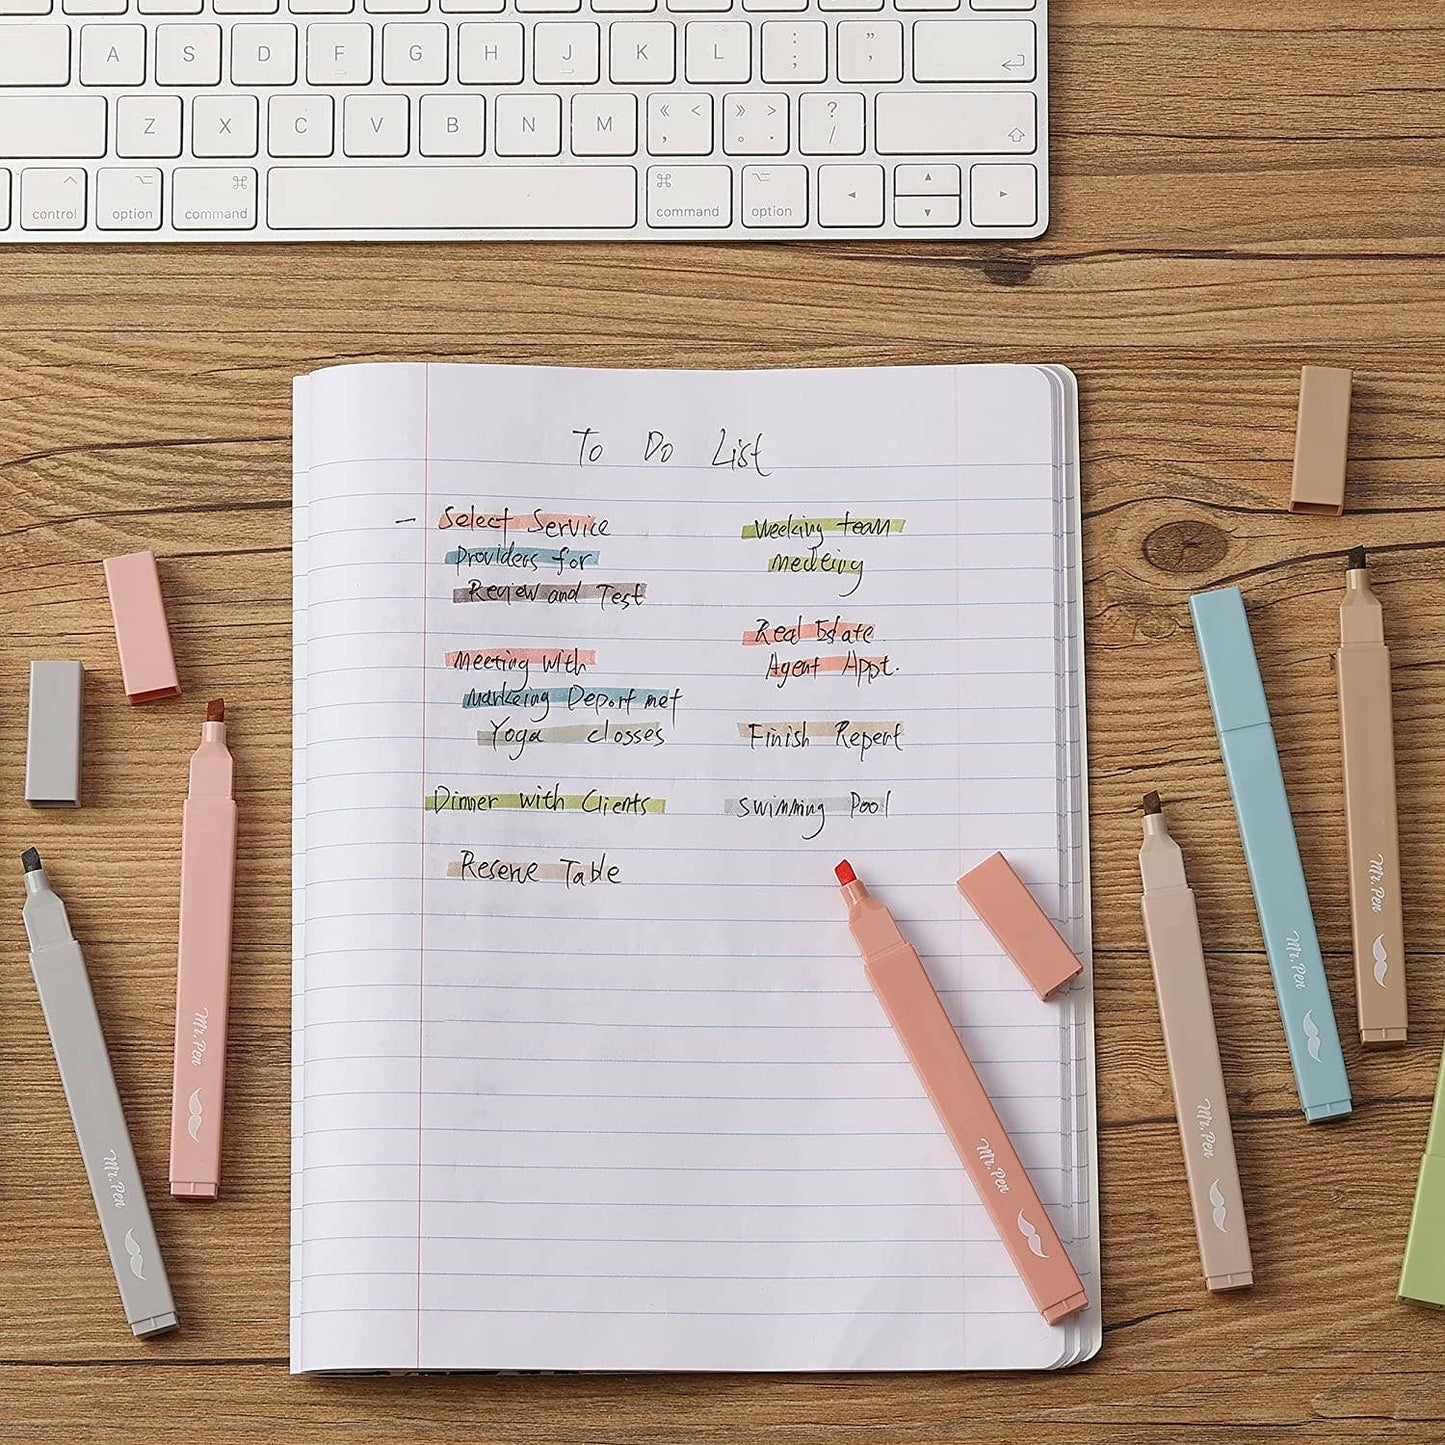 A S D F G H J K L : ; " ,
Z X C V B N M « < , » > . ? /
control option command command option
To Do List
— Select Service
Providers for
Review and Test
Meeting with
Markeing Deportmet
Yoga closses
Dinner with Clients
Reserve Table
Weeking team
Meeting
Real Estate
Agent Appt.
Finish Repert
Swimming Pool
Mr. Pen
Mr. Pen
Mr. Pen
Mr. Pen
Mr. Pen
Mr. Pen